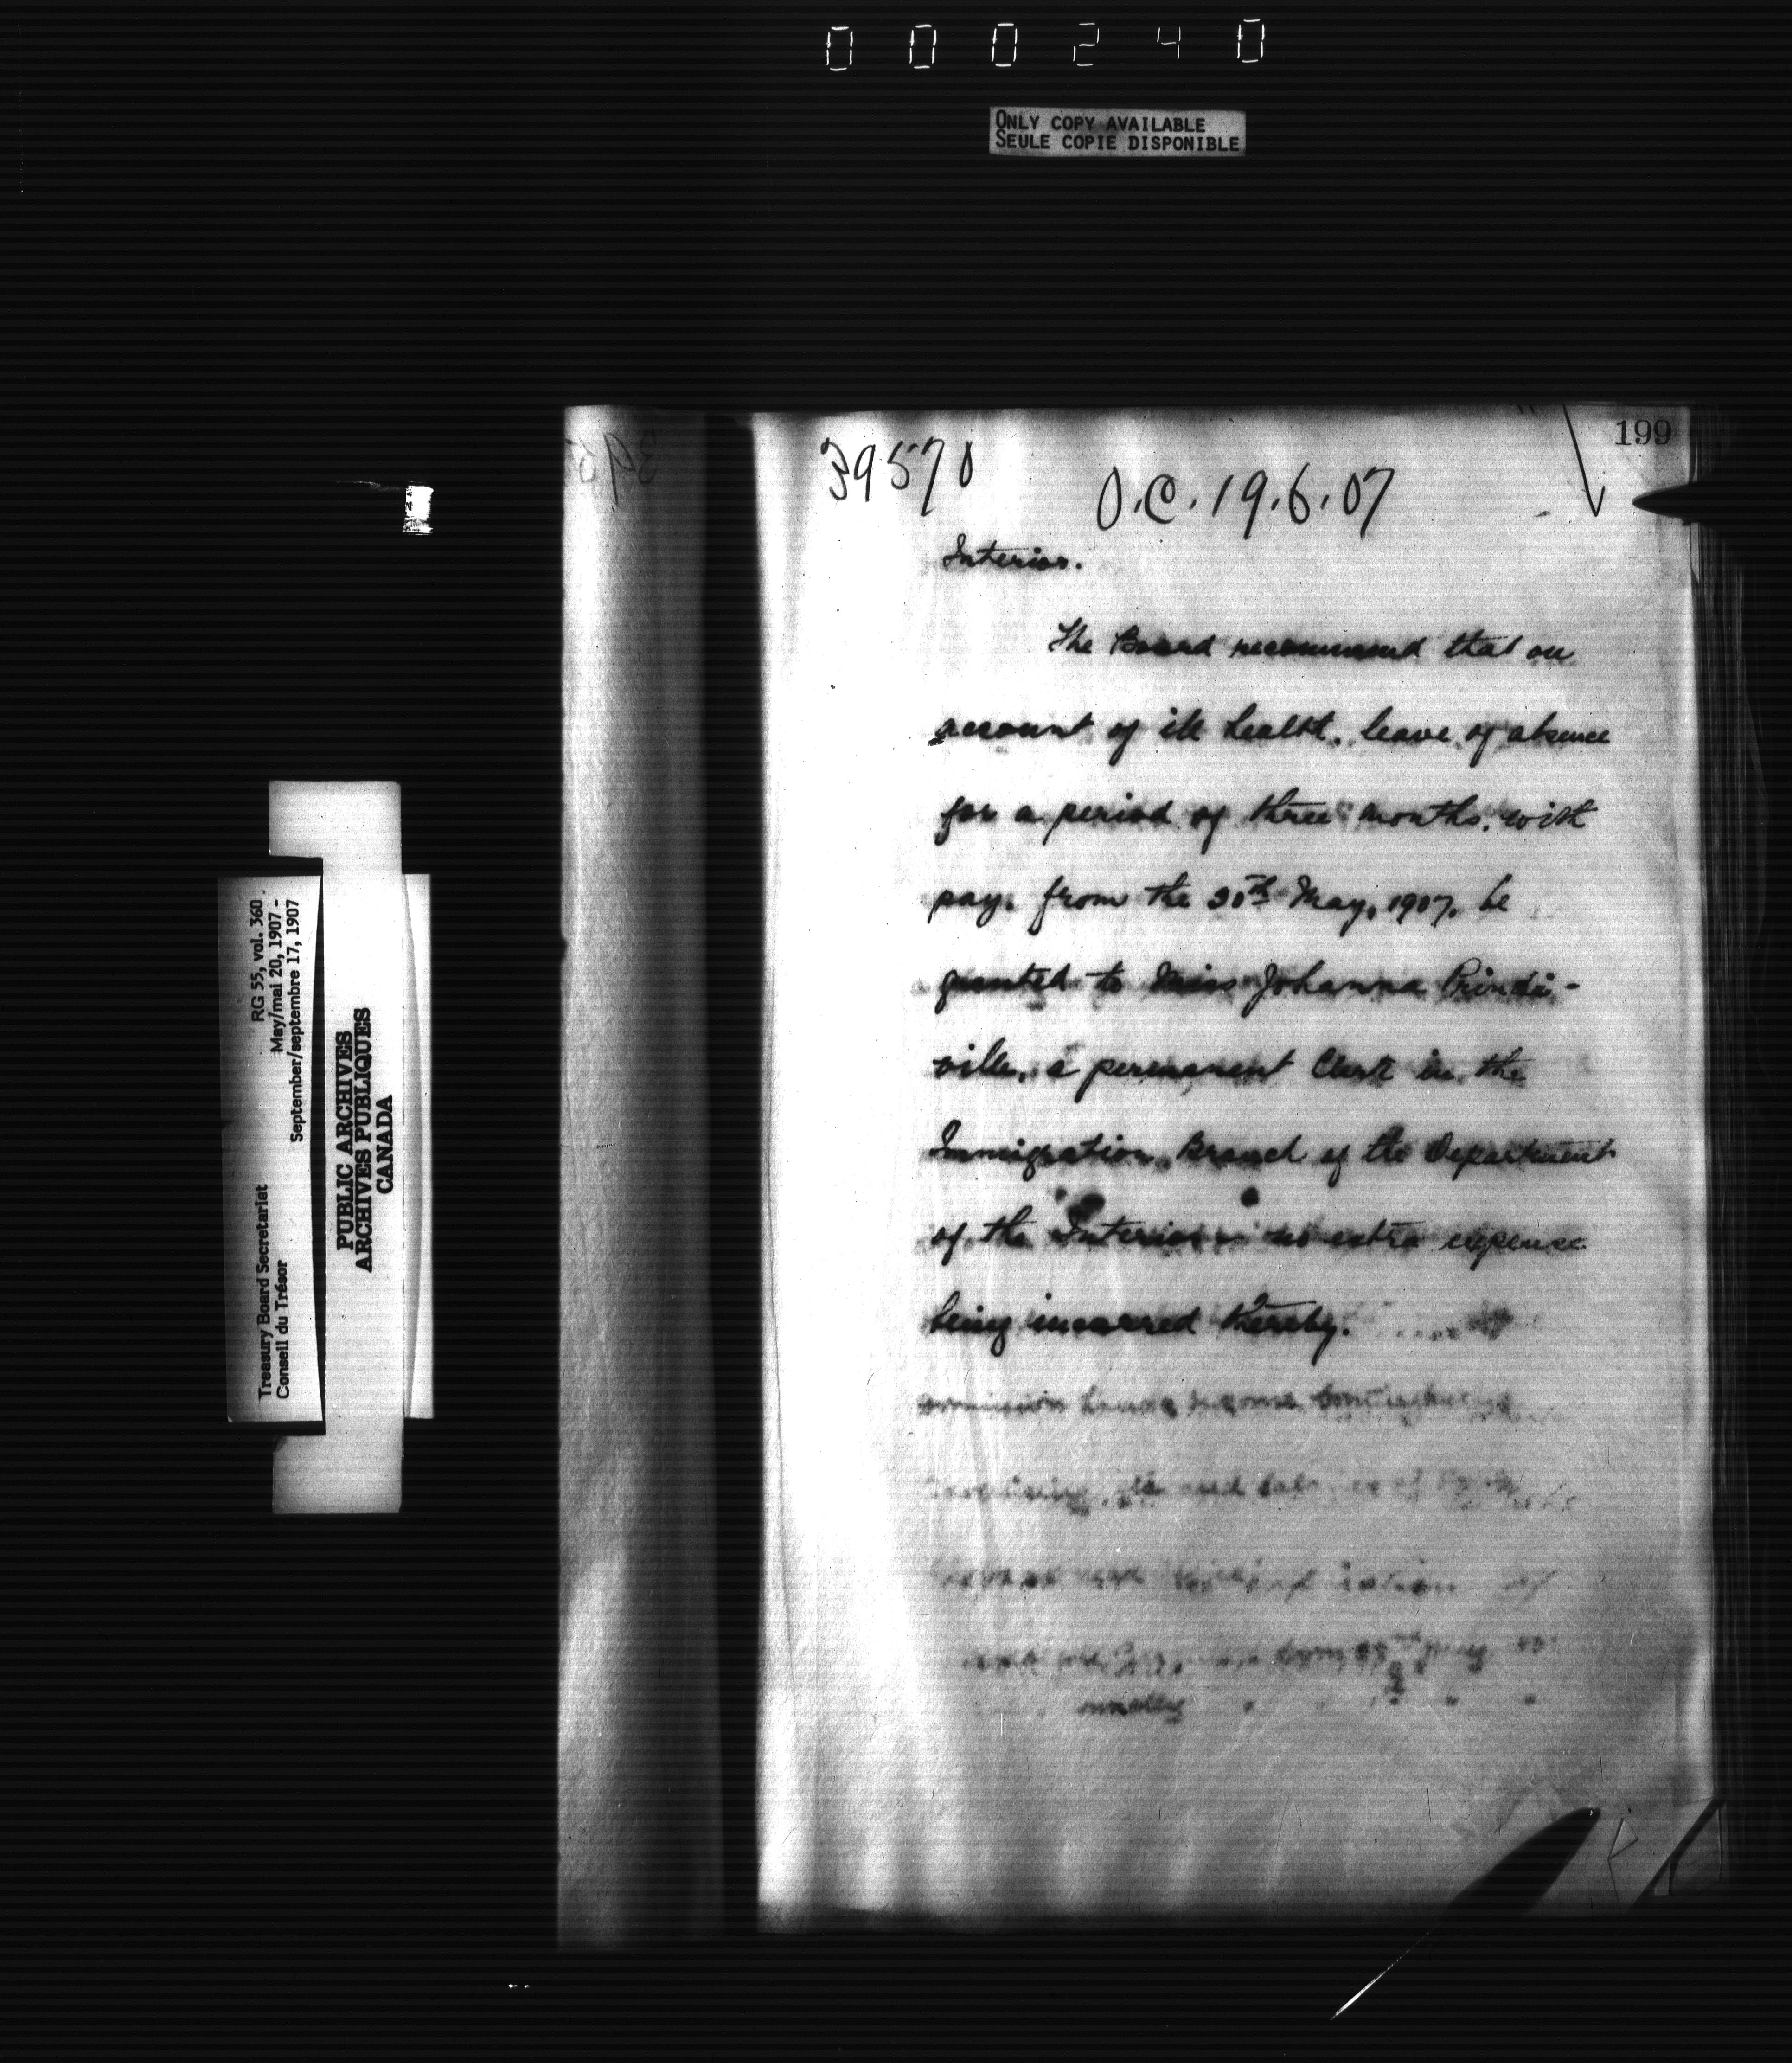 000240
ONLY COPY AVAILABLE
SEULE COPIE DISPONIBLE
199
39570
O.C. 19.6.07
Interior.
The Board recommend that on
account of ill health, leave of absence
for a period of three months, with
pay, from the 30th May, 1907, be
granted to Miss Johanna Prindi-
ville, a permanent Clerk in the
Immigration Branch of the Department
of the Interior no extra expense
being incurred thereby.
and balance of
of
RG 55, vol. 360
May/mai 20, 1907 -
September/septembre 17, 1907
Treasury Board Secretariat
Conseil du Trésor
PUBLIC ARCHIVES
ARCHIVES PUBLIQUES
CANADA